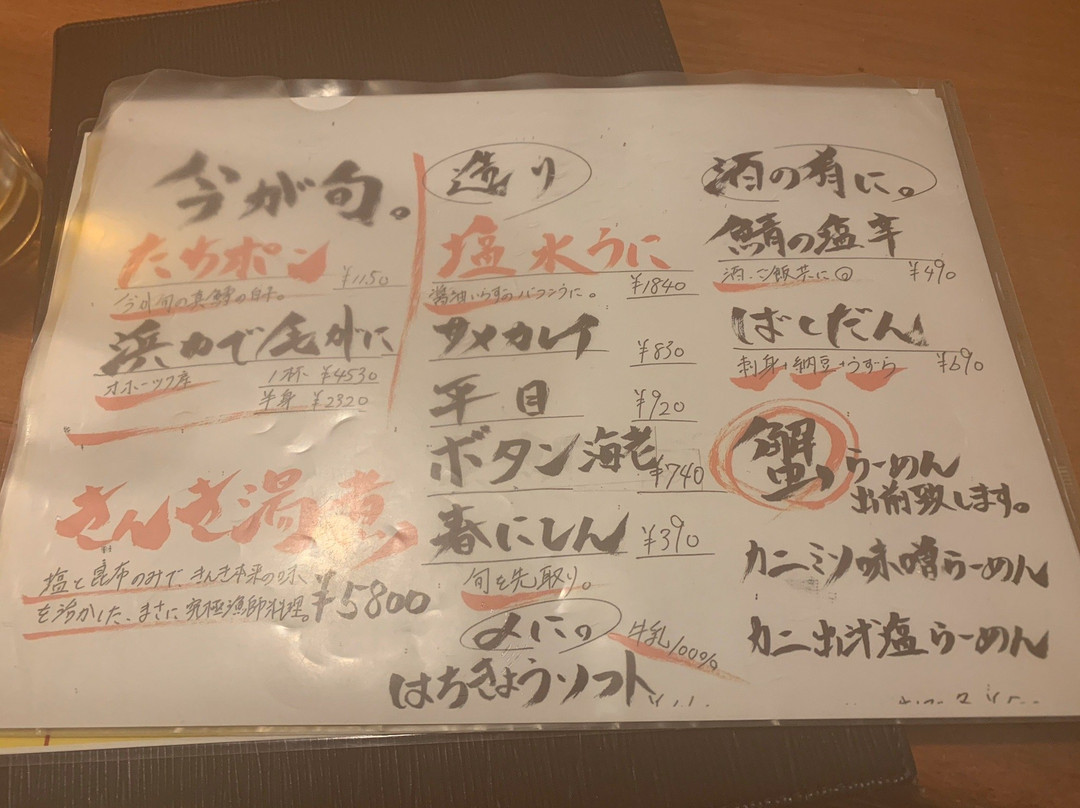 今が旬。
たちポン
¥1150
今が旬の真鱈の白子。
浜ゆで毛がに
オホーツク産
1杯 ¥4530
半身 ¥2320
きんき湯煮
塩と昆布のみで きんき本来の味
を活かした、まさに究極漁師料理。¥5800
造り
塩水うに
醤油いらずのバフンうに。
¥1840
サメカレイ
¥830
平目
¥920
ボタン海老
¥740
春にしん
¥390
旬を先取り。
〆にの
牛乳100%
はちきょうソフト
酒の肴に。
鯖の塩辛
酒、ご飯共に◎
¥490
ばくだん
刺身+納豆+うずら
¥690
蟹らーめん
出前致します。
カニミソ味噌らーめん
カニ出汁塩らーめん